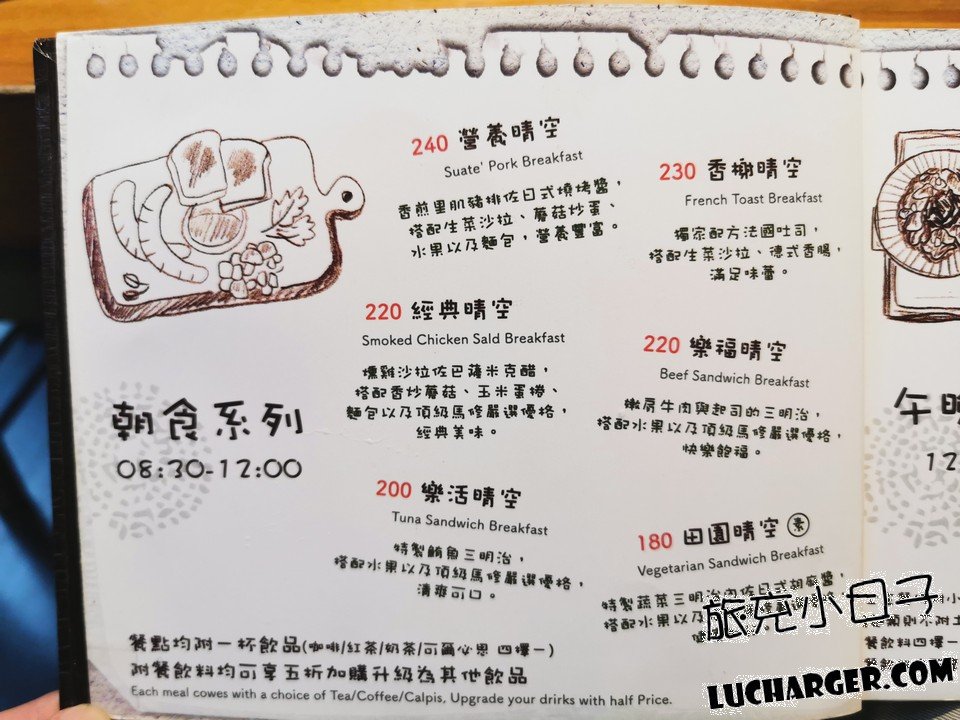 240 營養晴空
Suate' Pork Breakfast
香煎里肌豬排佐日式燒烤醬，
搭配生菜沙拉、蘑菇炒蛋、
水果以及麵包，營養豐富。
230 香榭晴空
French Toast Breakfast
獨家配方法國吐司，
搭配生菜沙拉、德式香腸，
滿足味蕾。
220 經典晴空
Smoked Chicken Sald Breakfast
燻雞沙拉佐巴薩米克醋，
搭配香炒蘑菇、玉米蛋捲、
麵包以及頂級馬修嚴選優格，
經典美味。
220 樂福晴空
Beef Sandwich Breakfast
嫩肩牛肉與起司的三明治，
搭配水果以及頂級馬修嚴選優格，
快樂飽福。
朝食系列
08:30-12:00
200 樂活晴空
Tuna Sandwich Breakfast
特製鮪魚三明治，
搭配水果以及頂級馬修嚴選優格，
清爽可口。
180 田園晴空 素
Vegetarian Sandwich Breakfast
特製蔬菜三明治內佐日式胡麻醬，
搭配水果以及
餐點均附一杯飲品(咖啡/紅茶/奶茶/可爾必思 四擇一)
附餐飲料均可享五折加購升級為其他飲品
Each meal cowes with a choice of Tea/Coffee/Calpis, Upgrade your drinks with half Price.
午
12
餐飲料四擇一
旅充小日子
LUCHARGER.COM